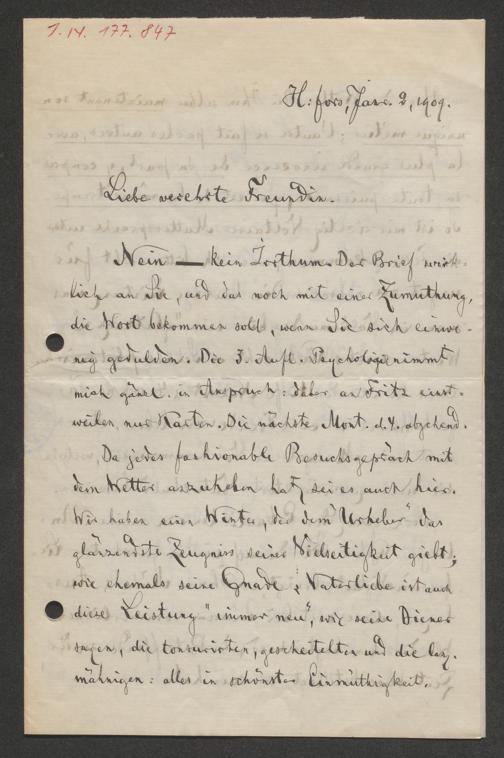 J. N. 177.847
H:fors, Janr. 2, 1909.
Liebe verehrte Freundin.
Nein — kein Irrthum. Der Brief wirk-
lich an Sie, und das noch mit einer Zumuthung,
die Wort bekommen soll, wenn Sie sich einwe-
nig gedulden. Die 3. Aufl. Psychologie nimmt
mich gänzl. in Anspruch: daher an Fritz einst-
weilen nur Karten. Die nächste Mont. d. 4. abgehend.
Da jedes fashionable Besuchsgespräch mit
dem Wetter anzuheben hat, sei es auch hier.
Wir haben einen Winter, der dem "Urheber" das
glänzendste Zeugniss seiner Vielseitigkeit giebt;
wie ehemals seine Gnade & Naturliebe ist auch
diese Leistung "immer neu", wie seine Diener
sagen, die tonsurirten, gescheitelten und die lang-
mähnigen: alles in schönster Einmüthigkeit.